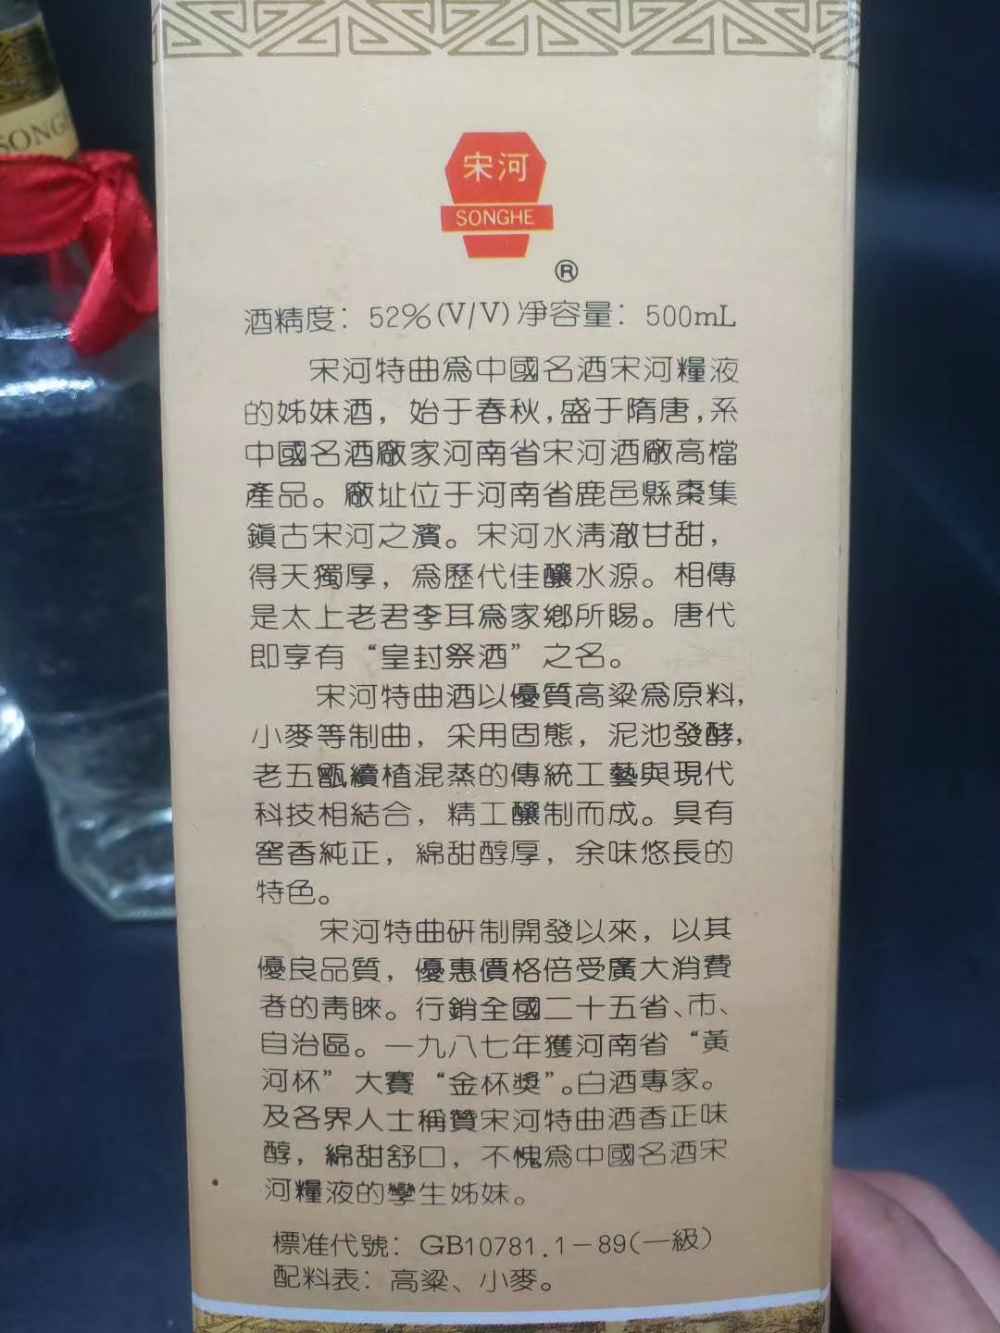 SONG
宋河
SONGHE
®
酒精度：52%(V/V)净容量：500mL
宋河特曲爲中國名酒宋河糧液
的姊妹酒，始于春秋，盛于隋唐，系
中國名酒廠家河南省宋河酒廠高檔
產品。廠址位于河南省鹿邑縣棗集
鎮古宋河之濱。宋河水清澈甘甜，
得天獨厚，爲歷代佳釀水源。相傳
是太上老君李耳爲家鄉所賜。唐代
即享有“皇封祭酒”之名。
宋河特曲酒以優質高粱爲原料，
小麥等制曲，采用固態，泥池發酵，
老五甑續楂混蒸的傳統工藝與現代
科技相結合，精工釀制而成。具有
窖香純正，綿甜醇厚，余味悠長的
特色。
宋河特曲研制開發以來，以其
優良品質，優惠價格倍受廣大消費
者的青睞。行銷全國二十五省、市、
自治區。一九八七年獲河南省“黃
河杯”大賽“金杯獎”。白酒專家。
及各界人士稱贊宋河特曲酒香正味
醇，綿甜舒口，不愧爲中國名酒宋
河糧液的孿生姊妹。
標准代號：GB10781.1－89(一級)
配料表：高粱、小麥。